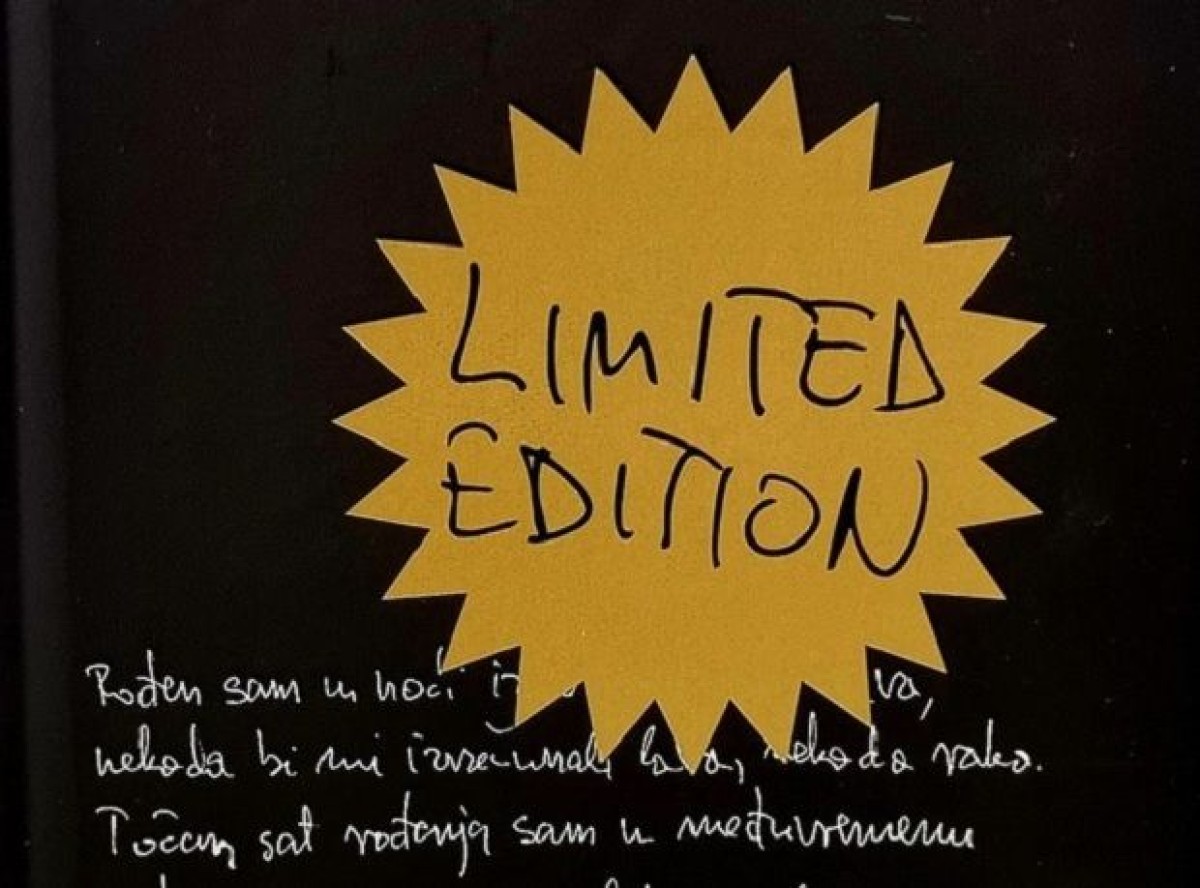 LIMITED
EDITION
Rođen sam u noći
nekoda bi mi izračunali lava, nekoda raka.
Točan sat rođenja sam u međuvremenu